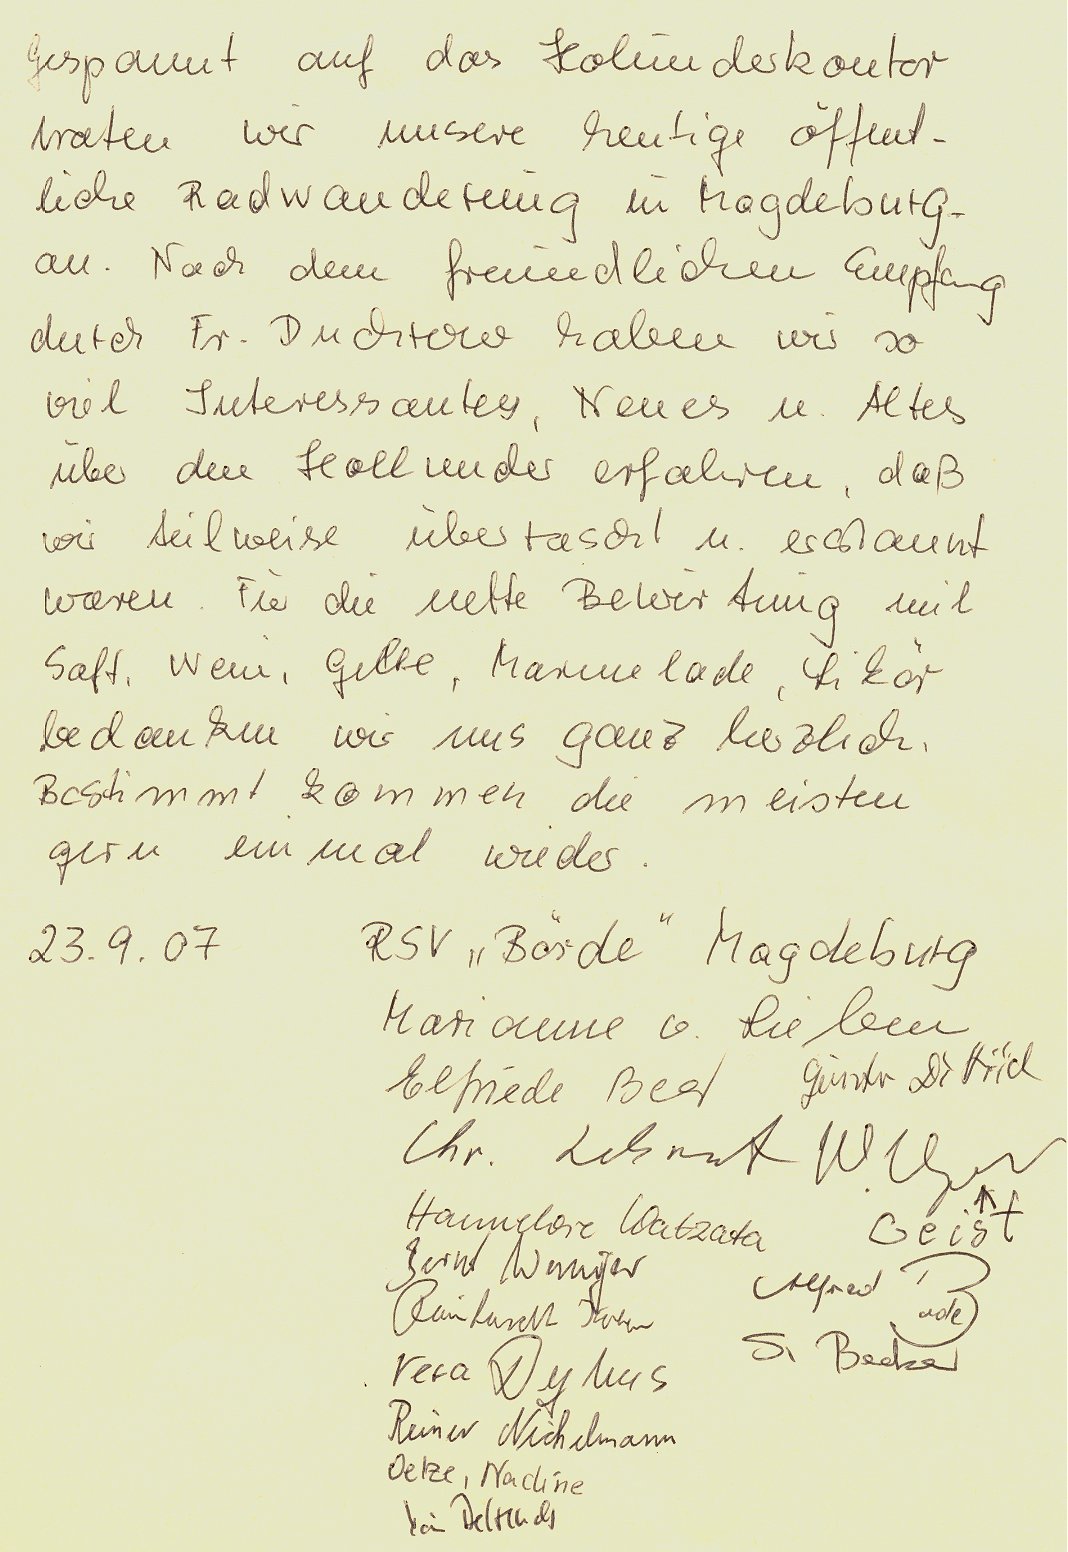 Gespannt auf das Holunderkontor
traten wir unsere heutige öffent-
liche Radwanderung in Magdeburg-
an. Nach dem freundlichen Empfang
durch Fr. Duchrow haben wir so
viel Interessantes, Neues u. Altes
über den Hollunder erfahren, daß
wir teilweise überrascht u. erstaunt
waren. Für die nette Bewirtung mit
Saft, Wein, Gelee, Marmelade, Likör
bedanken wir uns ganz herzlich.
Bestimmt kommen die meisten
gern einmal wieder.
23.9.07 RSV „Börde" Magdeburg
Marianne v. Lieben
Elfriede Günter Dittrich
Chr. W.
Hannelore Geist
Alfred Bade
Vera Dyhus S. Becker
Reiner Nichelmann
Oelze, Nadine